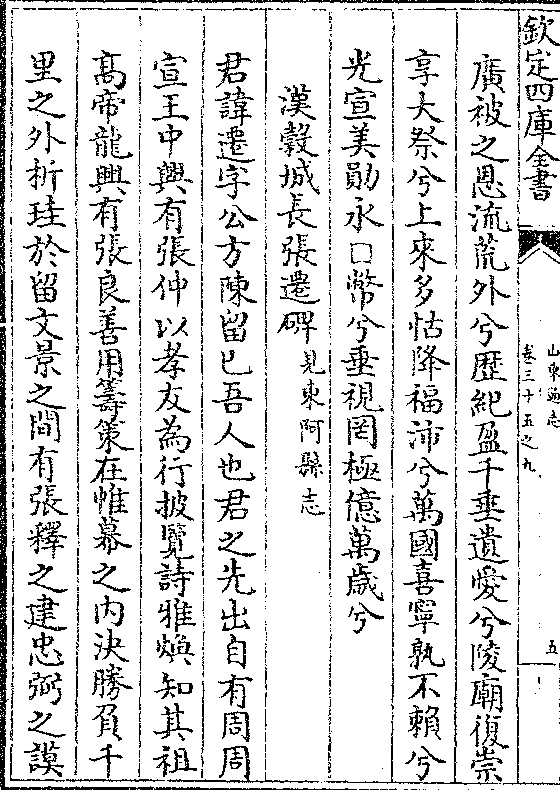 欽定四庫全書
山東通志
卷三十五之九
五
廣被之恩流荒外兮歴紀盈千垂遺愛兮陵廟復崇
享大祭兮上來多怙降福沛兮萬國喜寧孰不賴兮
光宣美勛永□幣兮垂視罔極億萬歳兮
漢穀城長張遷碑見東阿縣志
君諱遷字公方陳留已吾人也君之先出自有周周
宣王中興有張仲以孝友為行披覽詩雅煥知其祖
髙帝龍興有張良善用籌策在帷幕之内決勝負千
里之外析珪於留文景之間有張釋之建忠弼之謨